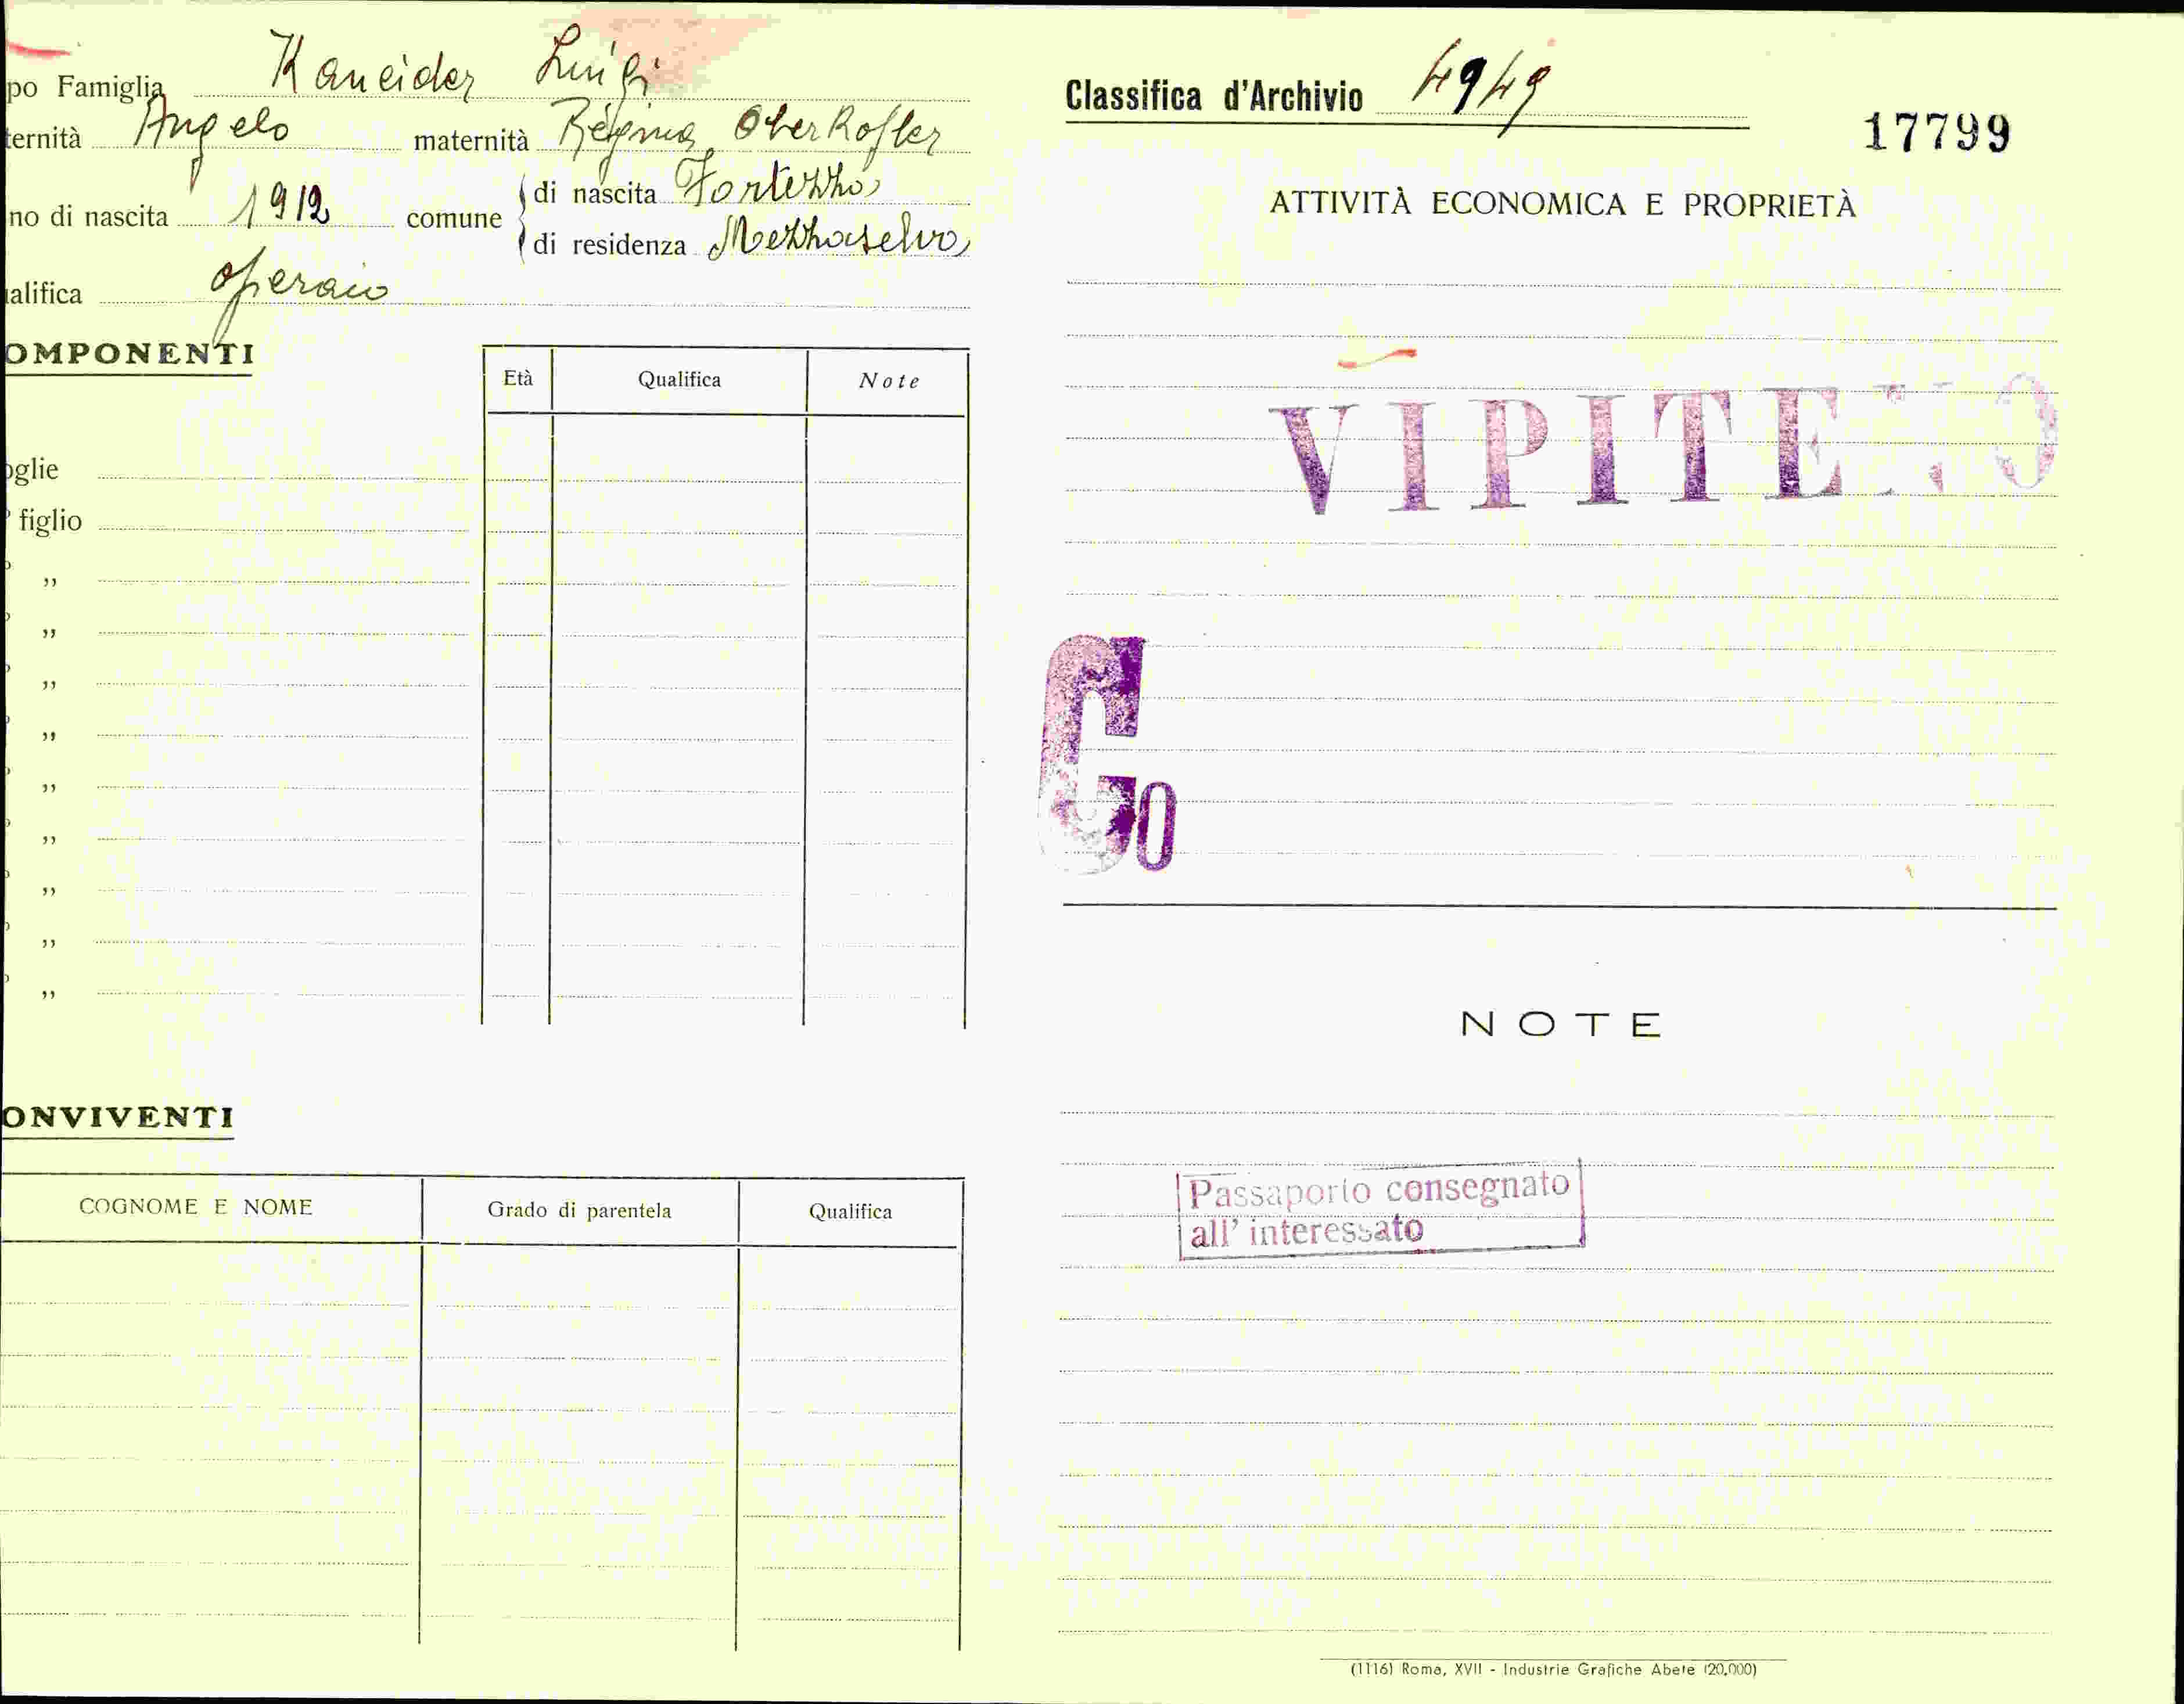 po Famiglia Kaneider Luigi
ternità Angelo maternità Regina Oberhofler
no di nascita 1912 comune di nascita Fortezza
di residenza Mezzaselva
alifica operaio
OMPONENTI
Età Qualifica Note
oglie
figlio
”
”
”
”
”
”
”
”
”
ONVIVENTI
COGNOME E NOME Grado di parentela Qualifica
Classifica d'Archivio 4949
17799
ATTIVITÀ ECONOMICA E PROPRIETÀ
VIPITENO
G0
NOTE
Passaporto consegnato
all' interessato
(1116) Roma, XVII - Industrie Grafiche Abete (20.000)